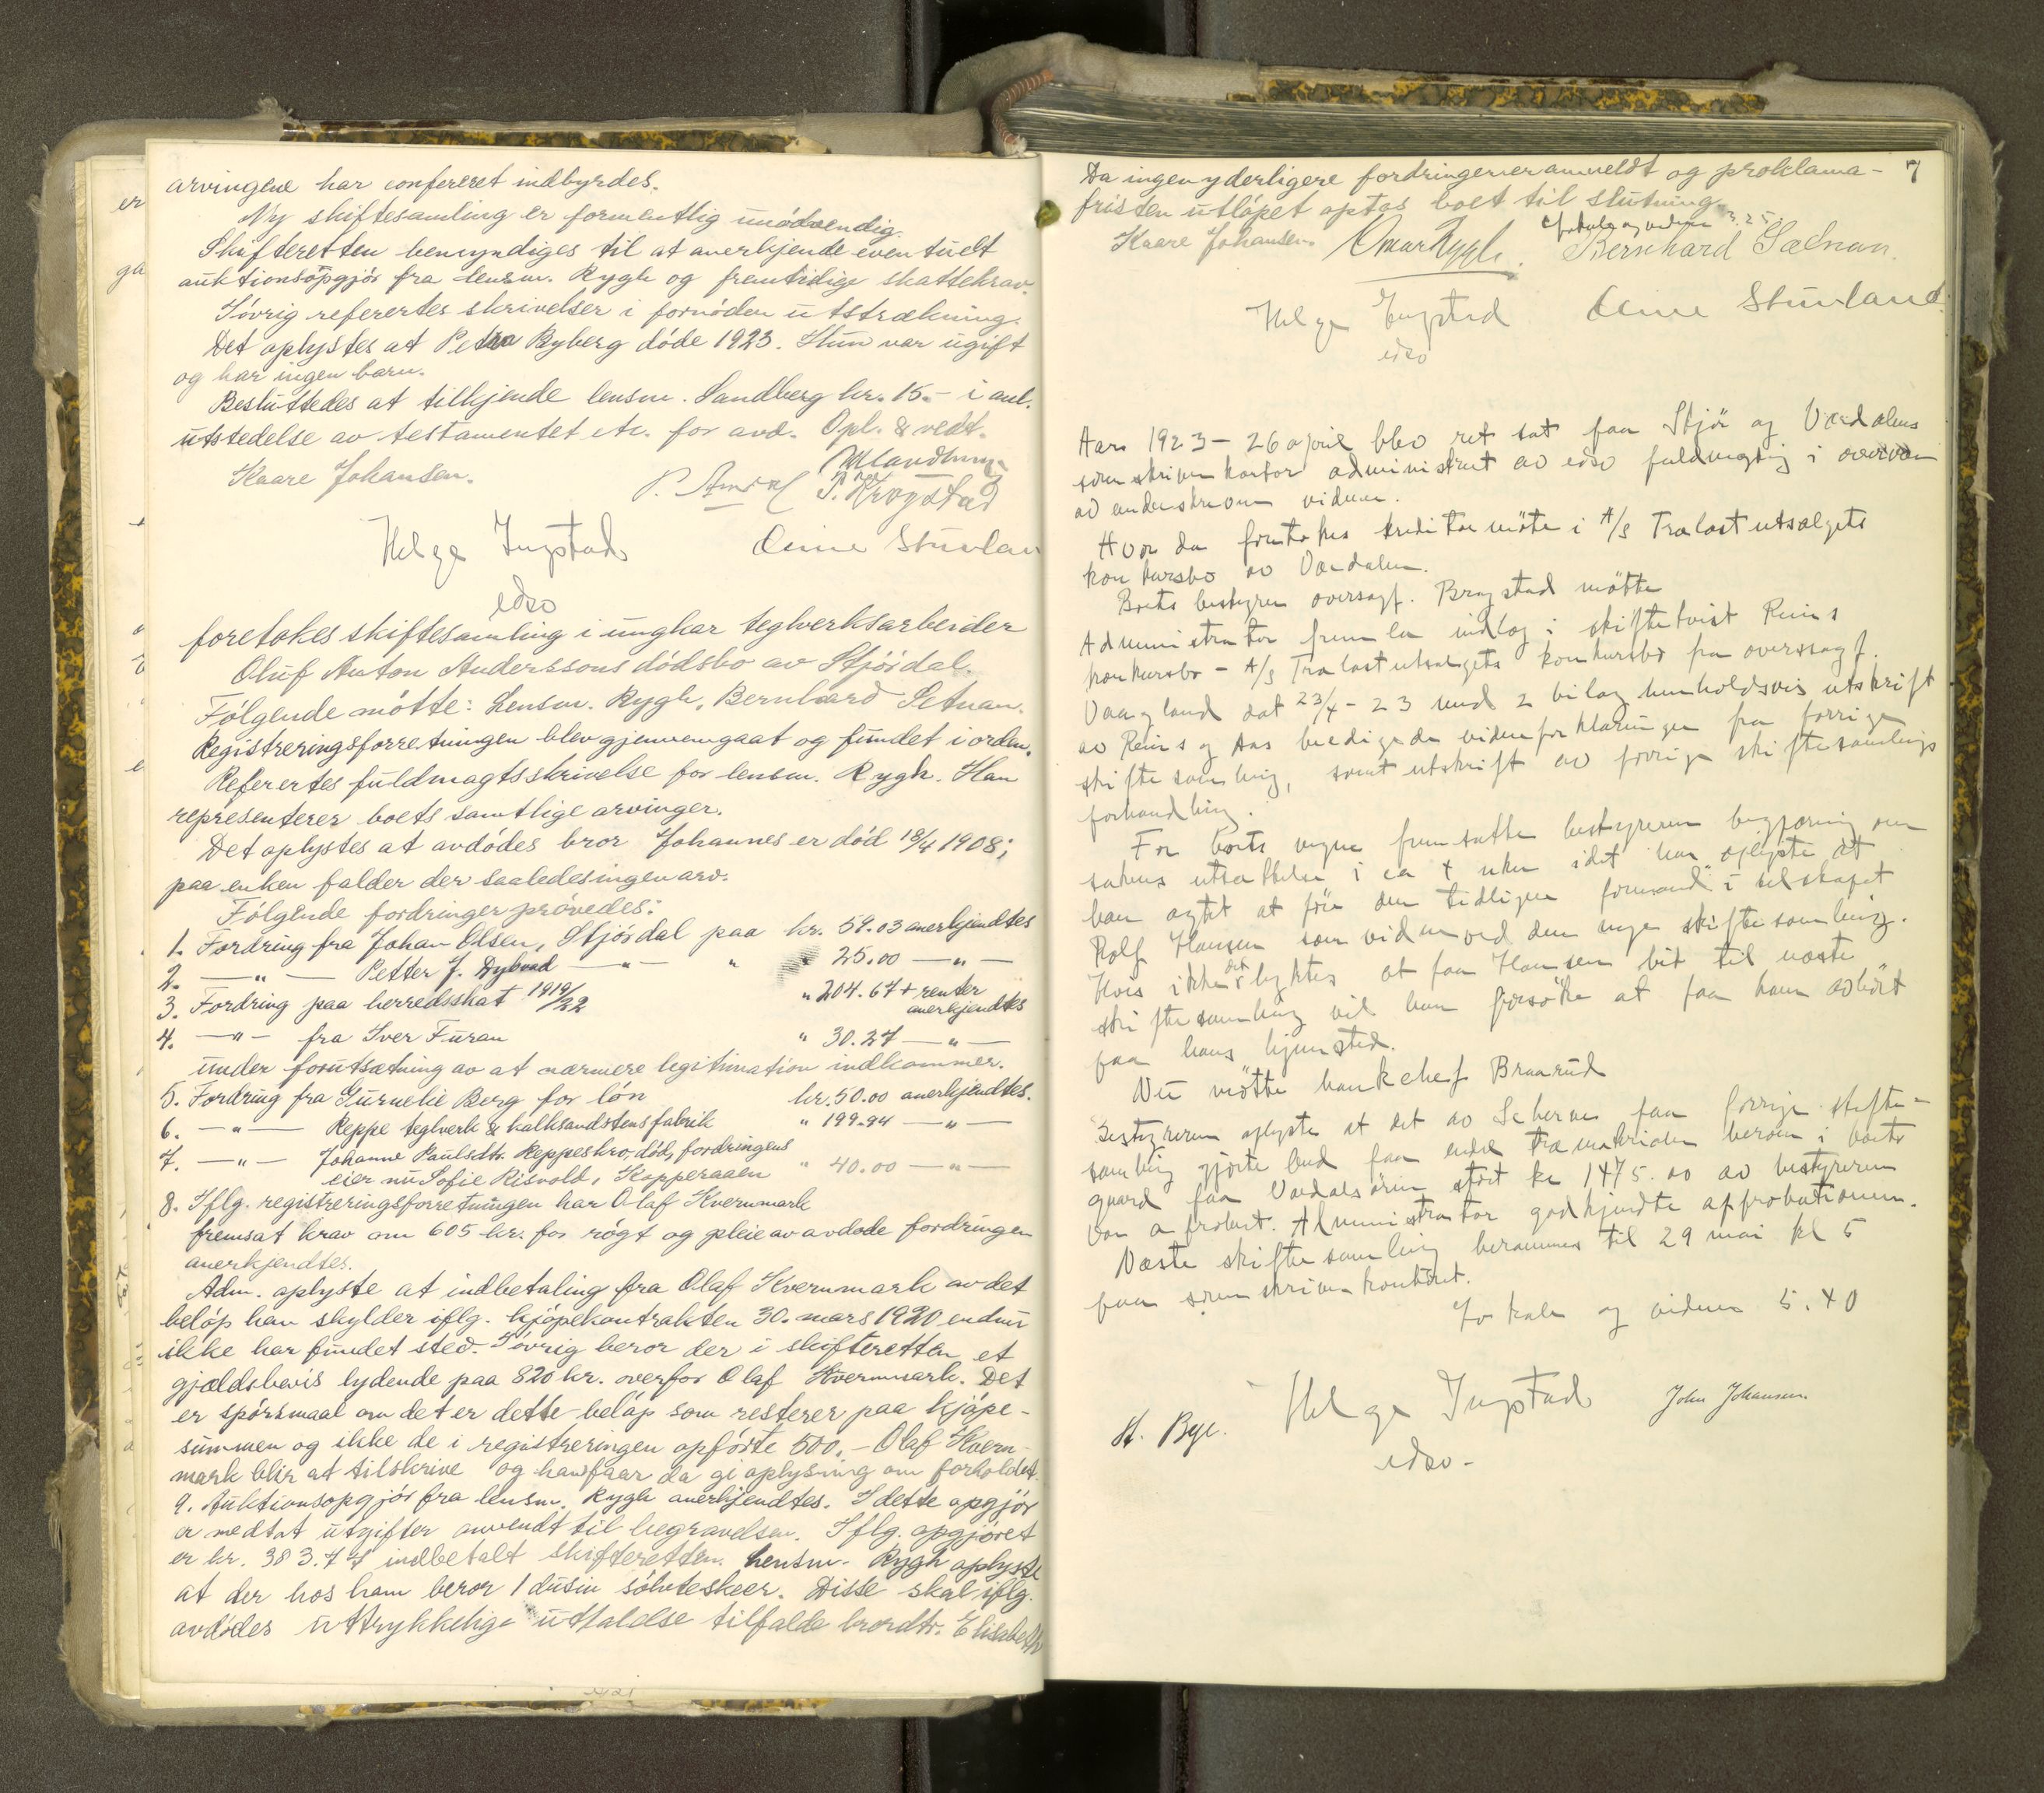 arvingene har confereret indbyrdes.
Ny skiftesamling er formentlig unödvendig.
Skifteretten bemyndiges til at anerkjende eventuelt
auktionsopgjör fra lensm. Rygh og fremtidige skattekrav.
Iövrig referertes skrivelser i fornöden utstrækning.
Det oplystes at Petra Byberg döde 1923. Hun var ugift
og har ingen barn.
Besluttedes at tilkjende lensm. Sandberg kr. 15.- i anl.
utstedelse av testamentet etc. for avd. Opl. & vedt.
Kaare Johansen.
P. Krogstad
Helge Ingstad
edso
foretokes skiftesamling i ungkar teglverksarbeider
Oluf Anton Anderssons dödsbo av Stjördal.
Fölgende mötte: Lensm. Rygh, Bernhard Setnan.
Registreringsforretningen blev gjennemgaat og fundet i orden.
Referertes fuldmagtsskrivelse for lensm. Rygh. Han
representerer boets samtlige arvinger.
Det oplystes at avdödes bror Johannes er död 18/4 1908;
paa enken falder der saaledes ingen arv.
Fölgende fordringer prövedes:
1. Fordring fra Johan Olsen, Stjördal paa kr. 59.03 anerkjendtes
2. —"— Petter J. Dybvad —"— " 25.00 —"—
3. Fordring paa herredsskat 1919/22 " 204.67 + renter
anerkjendtes
4. —"— fra Iver Furan " 30.27 —"—
under forutsætning av at nærmere legitimation indkommer.
5. Fordring fra Gurnelie Berg for lön kr. 50.00 anerkjendtes.
6. —"— Reppe teglverk & kalksandstensfabrik " 199.94 —"—
7. —"— Johanne Paulsdtr. Reppeskro, död, fordringens
eier nu Sofie Risvold, Kopperaaen " 40.00 —"—
8. Iflg. registreringsforretningen har Olaf Kvernmark
fremsat krav om 605 kr. for rögt og pleie av avdöde fordringen
anerkjendtes.
Adm. oplyste at indbetaling fra Olaf Kvernmark av det
belöp han skylder iflg. kjöpekontrakten 30. mars 1920 endnu
ikke har fundet sted. Iövrig beror der i skifteretten et
gjældsbevis lydende paa 820 kr. overfor Olaf Kvernmark. Det
er spörsmaal om det er dette belöp som resterer paa kjöpe-
summen og ikke de i registreringen opförte 500.- Olaf Kvern-
mark blir at tilskrive og han faar da gi oplysning om forholdet.
9. Auktionsopgjör fra lensm. Rygh anerkjendtes. I dette opgjör
er medtat utgifter anvendt til begravelsen. Iflg. opgjöret
er kr. 383.77 indbetalt skifteretten. Lensm. Rygh oplyste
at der hos ham beror 1 dusin sölvteskeer. Disse skal iflg.
avdödes uttrykkelige uttalelse tilfalde brordtr. Elisabeth
7
Da ingen yderligere fordringer er anmeldt og proklama-
fristen utlöpet optas boet til slutning.
Kaare Johansen. Omar Rygh. Bernhard Sætnan.
Helge Ingstad
edso
Aar 1923 - 26 april blev ret sat paa Stjör og Værdalens
sorenskriverkontor administrert av edso fuldmægtig i overvær
av underskrevne vidner.
Hvor da foretokes kreditormöte i A/S Trælastutsalgets
konkursbo av Værdalen.
Boets bestyrer oversagf. Brogstad mötte
Administrator fremla indlæg i skiftetvist Reins
konkursbo - A/S Trælastutsalgets konkursbo fra overrsagf.
Vaagland dat 23/4 - 23 med 2 bilag henholdsvis utskrift
av Reins og Aas beedigede vidneforklaringer fra forrige
skiftesamling, samt utskrift av forrige skiftesamlings
forhandling.
For boets vegne fremsatte bestyreren begjæring om
sakens utsættelse i ca 4 uker idet han oplyste at
han agtet at före den tidligere formand i selskapet
Rolf Hansen som vidne ved den nye skiftesamling.
Hvis ikke det lyktes at faa Hansen hit til næste
skiftesamling vil han forsöke at faa ham avhört
paa hans hjemsted.
Nu mötte bankchef Braarud
Bestyreren oplyste at det av Scherve paa forrige skifte-
samling gjorte bud paa endel træmaterialer beroende i boets
gaard paa Værdalsören stort kr 1475.00 av bestyreren
var aprobert. Administrator godkjendte approbationen.
Næste skiftesamling berammes til 29 mai kl 5
paa sorenskriverkontoret.
Protokoller og vidner 5.40
H. Bye. Helge Ingstad John Johansen
edso-